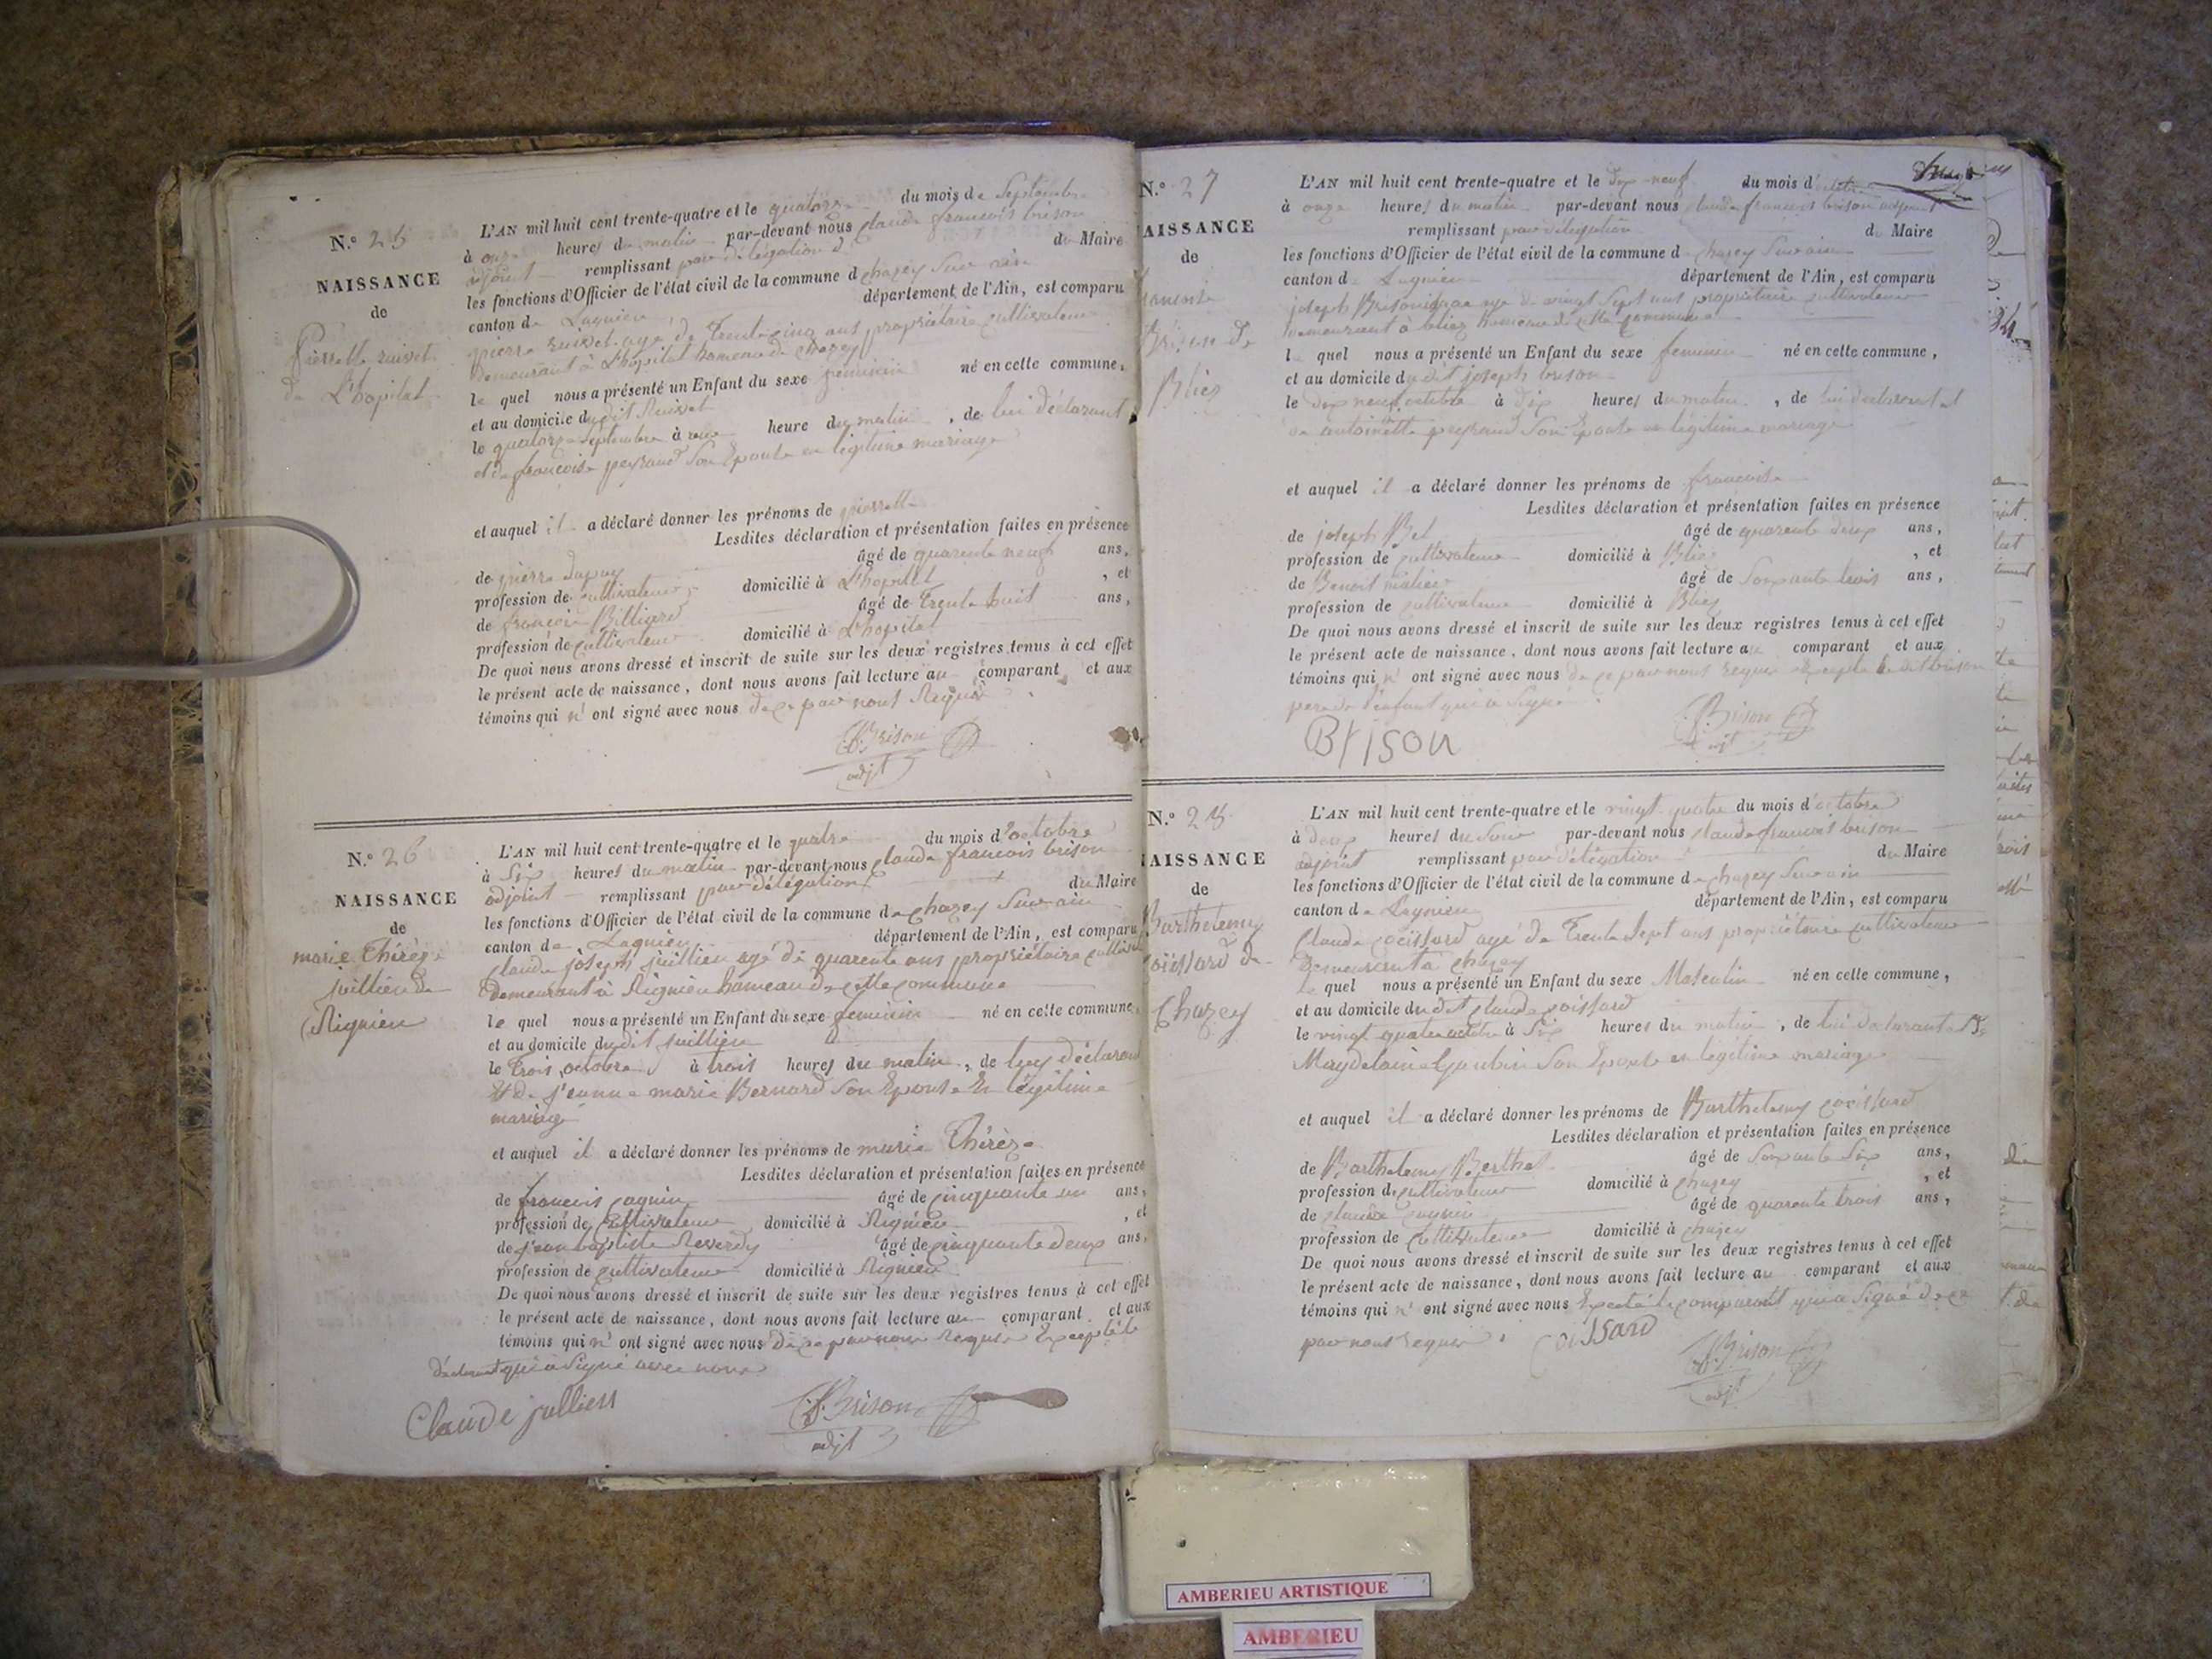 N.° 25
NAISSANCE
de
Pierrette ruivet
de L'hopital
L'AN mil huit cent trente-quatre et le quatorze du mois de Septembre
à onze heures du matin par-devant nous Claude françois brison
adjoint remplissant par délégation du Maire
les fonctions d'Officier de l'état civil de la commune de chazey Sur ain
canton de Lagnieu département de l'Ain, est comparu
pierre ruivet agé de Trente cinq ans propriétaire cultivateur
demeurant à L'hopital hameau de chazey
le quel nous a présenté un Enfant du sexe feminin né en cette commune,
et au domicile dudit Ruivet
le quatorze Septembre à heure du matin, de lui déclarant
et de françoise peyraud Son Epouse en légitime mariage
et auquel il a déclaré donner les prénoms de pierrette
Lesdites déclaration et présentation faites en présence
de pierre dupuy âgé de quarente neuf ans,
profession de cultivateur domicilié à L'hopital, et
de françois Billiard âgé de Trente huit ans,
profession de cultivateur domicilié à L'hopital
De quoi nous avons dressé et inscrit de suite sur les deux registres tenus à cet effet
le présent acte de naissance, dont nous avons fait lecture au comparant et aux
témoins qui n' ont signé avec nous de ce par nous Requis
C.f. Brison
adjt
N.° 26
NAISSANCE
de
marie Thérèse
juillien de
Rignieu
L'AN mil huit cent trente-quatre et le quatre du mois d'octobre
à Six heures du matin par-devant nous Claude françois brison
adjoint remplissant par délégation du Maire
les fonctions d'Officier de l'état civil de la commune de chazey Sur ain
canton de Lagnieu département de l'Ain, est comparu
Claude joseph juillien agé de quarente ans propriétaire
Demeurant à Rignieu hameau de cette commune
le quel nous a présenté un Enfant du sexe feminin né en cette commune,
et au domicile dudit juillien
le Trois octobre à trois heures du matin, de luy déclarant
Et de jeanne marie Bernard Son Epouse En légitime
mariage
et auquel il a déclaré donner les prénoms de marie Thérèse
Lesdites déclaration et présentation faites en présence
de françois cagnin âgé de cinquante un ans,
profession de cultivateur domicilié à Rignieu, et
de jean baptiste Reverdy âgé de cinquante deux ans,
profession de cultivateur domicilié à Rignieu
De quoi nous avons dressé et inscrit de suite sur les deux registres tenus à cet effet
le présent acte de naissance, dont nous avons fait lecture au comparant et aux
témoins qui n' ont signé avec nous De ce par nous Requis Excepté le
déclarant qui a Signé avec nous
Claude jullien
C.f. Brison
adjt
N.° 27
AISSANCE
de
Brison de
Bliez
L'AN mil huit cent trente-quatre et le dix neuf du mois d'octobre
à onze heures du matin par-devant nous Claude françois brison adjoint
remplissant par délégation du Maire
les fonctions d'Officier de l'état civil de la commune de chazey Sur ain
canton de Lagnieu département de l'Ain, est comparu
joseph Brison agé de vingt Sept ans propriétaire cultivateur
demeurant à bliez hameau de cette commune
le quel nous a présenté un Enfant du sexe feminin né en cette commune,
et au domicile dudit joseph brison
le dix neuf octobre à dix heures du matin, de lui déclarant et
de antoinette peyraud Son Epouse en légitime mariage
et auquel il a déclaré donner les prénoms de françoise
Lesdites déclaration et présentation faites en présence
de joseph Bel âgé de quarente deux ans,
profession de cultivateur domicilié à Bliez, et
de Benoit âgé de Soixante trois ans,
profession de cultivateur domicilié à Bliez
De quoi nous avons dressé et inscrit de suite sur les deux registres tenus à cet effet
le présent acte de naissance, dont nous avons fait lecture au comparant et aux
témoins qui n' ont signé avec nous de ce par nous requis Excepté le dit brison
pere de l'enfant qui a Signé
Brison
C.f. Brison
adjt
N.° 28
AISSANCE
de
Barthelemy
coissard de
Chazey
L'AN mil huit cent trente-quatre et le vingt quatre du mois d'octobre
à deux heures du Soir par-devant nous Claude françois brison
adjoint remplissant par délégation du Maire
les fonctions d'Officier de l'état civil de la commune de chazey Sur ain
canton de Lagnieu département de l'Ain, est comparu
Claude coissard agé de Trente Sept ans propriétaire cultivateur
Demeurant à chazey
le quel nous a présenté un Enfant du sexe Masculin né en cette commune,
et au domicile dudit Claude coissard
le vingt quatre octobre à Six heures du matin, de lui déclarant Et De
Magdelaine Son Epouse en légitime mariage
et auquel il a déclaré donner les prénoms de Barthelemy coissard
Lesdites déclaration et présentation faites en présence
de Barthelemy Berthet âgé de Soixante Six ans,
profession de cultivateur domicilié à chazey, et
de Claude âgé de quarente trois ans,
profession de Cultivateur domicilié à chazey
De quoi nous avons dressé et inscrit de suite sur les deux registres tenus à cet effet
le présent acte de naissance, dont nous avons fait lecture au comparant et aux
témoins qui n' ont signé avec nous Excepté le comparant qui a Signé de ce
par nous requis
Coissard
C.f. Brison
adjt
AMBERIEU ARTISTIQUE
AMBERIEU